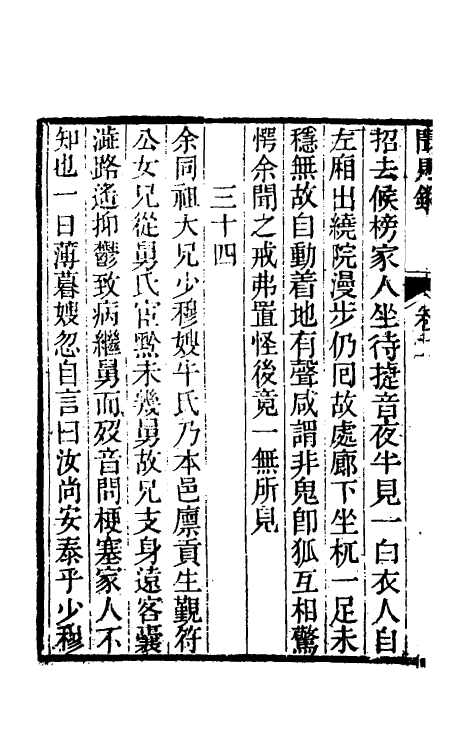 招去候榜家人坐待捷音夜半見一白衣人自
左廂出繞院漫步仍囘故處廊下坐杌一足未
穩無故自動着地有聲咸謂非鬼卽狐互相驚
愕余聞之戒弗置怪後竟一無所見
三十四
余同祖大兄少穆嫂牛氏乃本邑廩貢生覲符
公女兄從舅氏宦黔未幾舅故兄支身遠客囊
澁路遙抑鬱致病繼舅而歿音問梗塞家人不
知也一日薄暮嫂忽自言曰汝尚安泰乎少穆